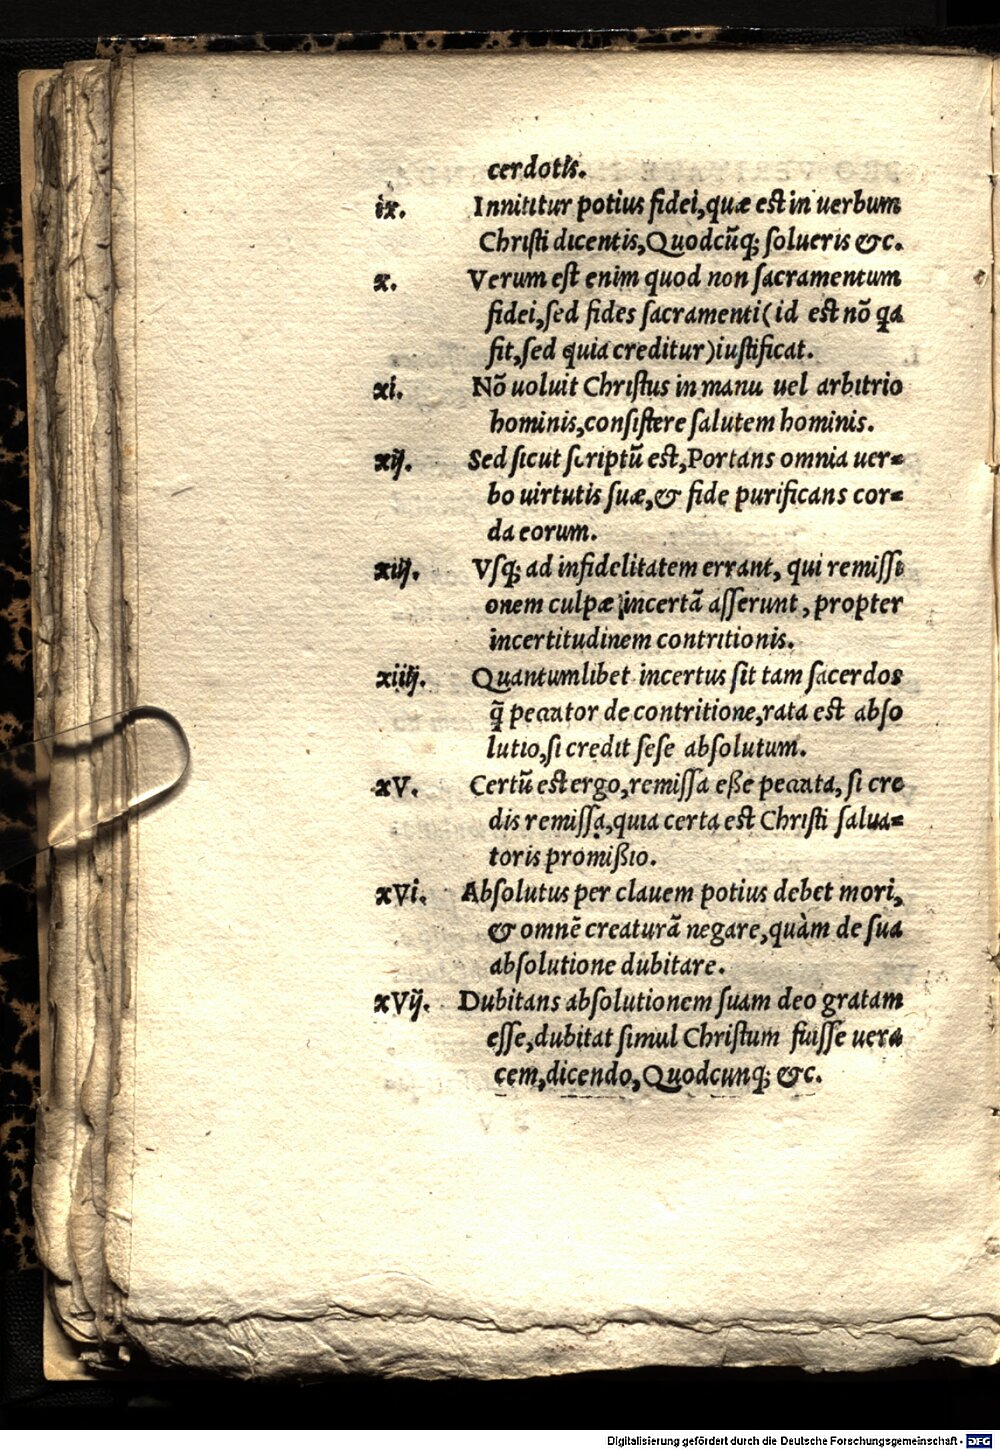 cerdotis.
ix. Innititur potius fidei, quæ est in uerbum
Christi dicentis, Quodcũq; solueris &c.
x. Verum est enim quod non sacramentum
fidei, sed fides sacramenti (id est nõ qa
fit, sed quia creditur) iustificat.
xi. Nõ uoluit Christus in manu uel arbitrio
hominis, consistere salutem hominis.
xij. Sed sicut scriptũ est, Portans omnia uer=
bo uirtutis suæ, & fide purificans cor=
da eorum.
xiij. Vsq; ad infidelitatem errant, qui remissi
onem culpæ incertã asserunt, propter
incertitudinem contritionis.
xiiij. Quantumlibet incertus sit tam sacerdos
q̃ peccator de contritione, rata est abso
lutio, si credit sese absolutum.
xV. Certũ est ergo, remissa eße peccata, si cre
dis remissa, quia certa est Christi salua=
toris promißio.
xVi. Absolutus per clauem potius debet mori,
& omnẽ creaturã negare, quàm de sua
absolutione dubitare.
xVij. Dubitans absolutionem suam deo gratam
esse, dubitat simul Christum fuisse uera
cem, dicendo, Quodcunq; &c.
Digitalisierung gefördert durch die Deutsche Forschungsgemeinschaft - DFG